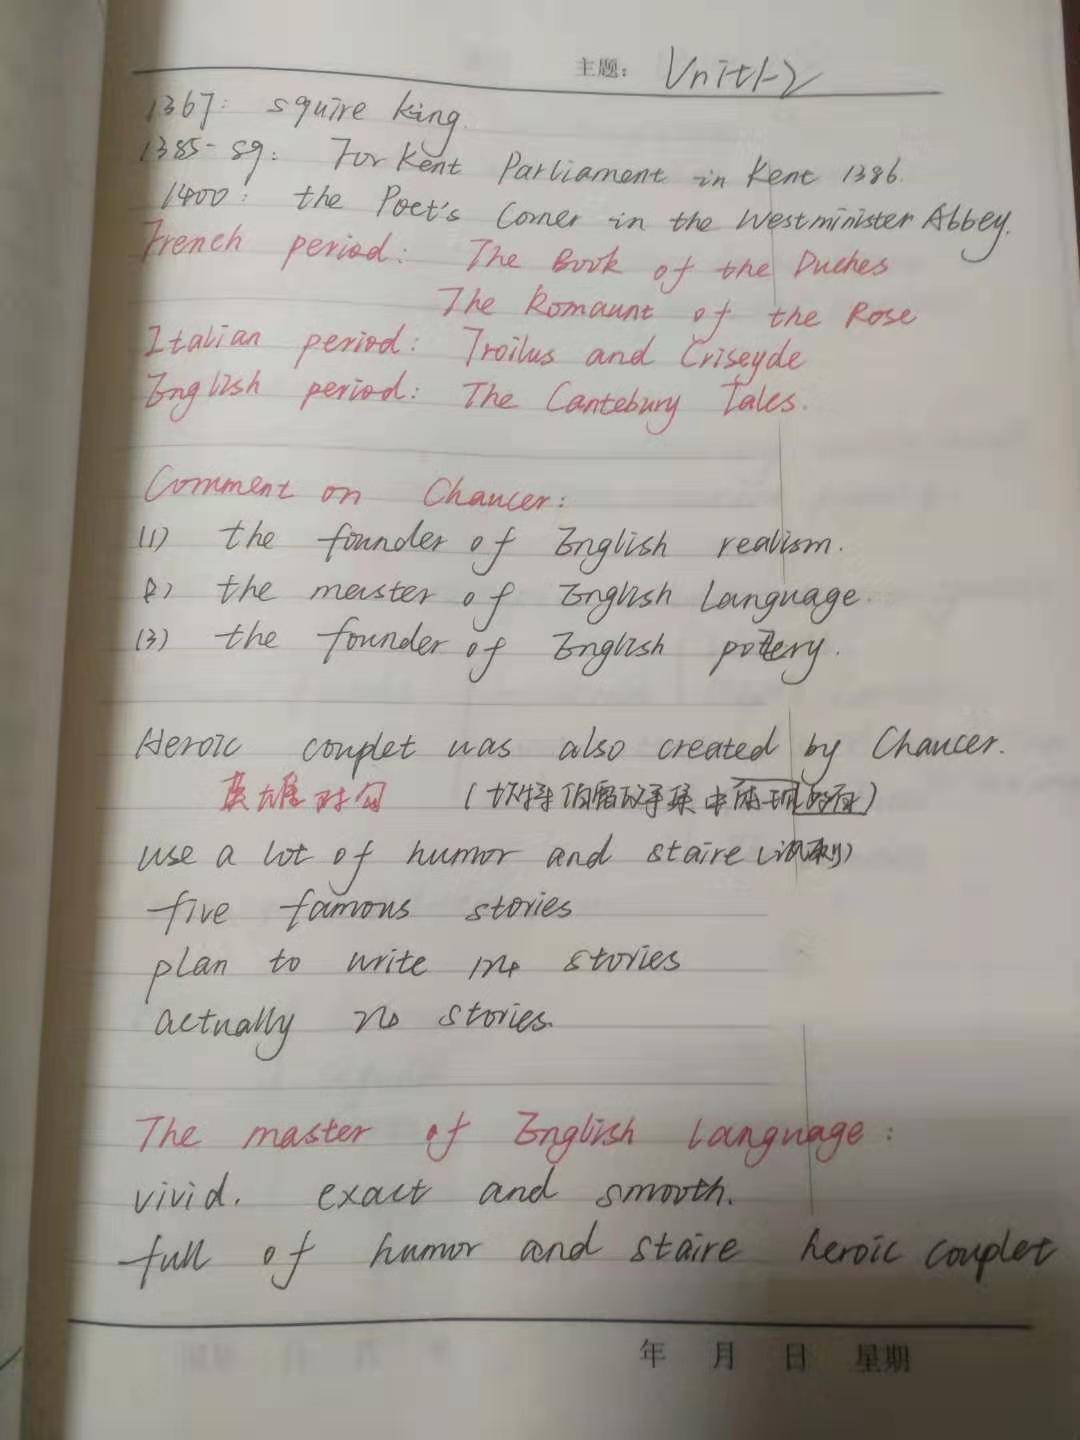 主题: Unit1-2
1367: squire king.
1385-89: For Kent Parliament in Kent 1386.
1400: the Poet's Corner in the Westminister Abbey.
French period: The Book of the Duches
The Romaunt of the Rose
Italian period: Troilus and Criseyde
English period: The Cantebury Tales.
Comment on Chaucer:
(1) the founder of English realism.
(2) the master of English Language.
(3) the founder of English poetry.
Heroic couplet was also created by Chaucer.
英雄对句 (坎特伯雷故事集中
use a lot of humor and staire (讽刺)
five famous stories
plan to write stories
actually stories.
The master of English language:
vivid. exact and smooth.
full of humor and staire heroic couplet
年 月 日 星期